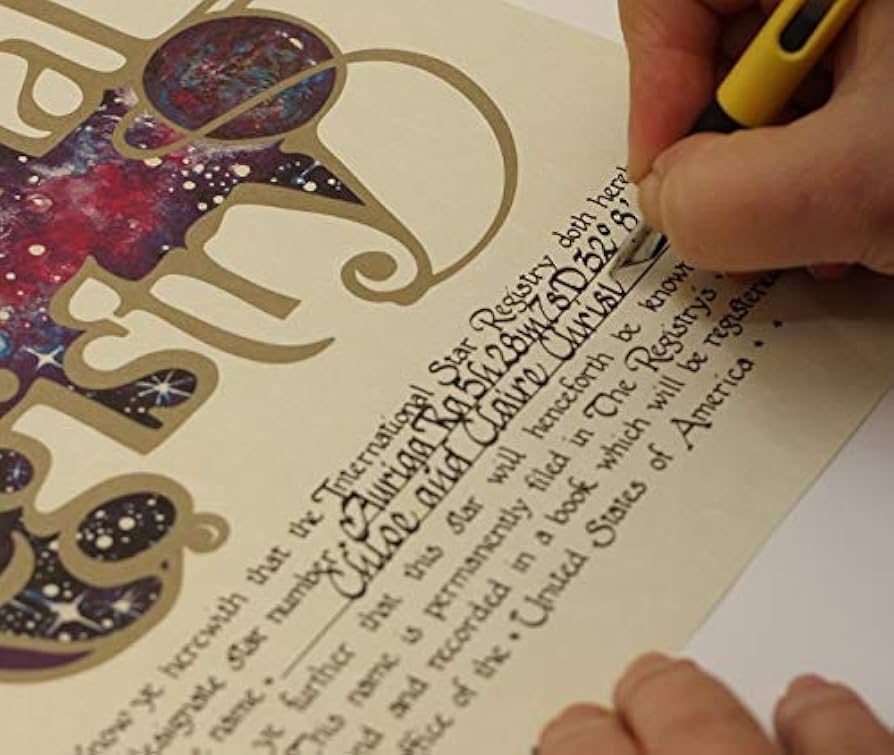 al
istry
now ye herewith that the International Star Registry doth here
designate star number Auriga Ra 5h 28m 7s D 32° 8'
name Chloe and Claire Christ
further that this star will henceforth be known
This name is permanently filed in The Registry's
and recorded in a book which will be registere
ffice of the • United States of America • •